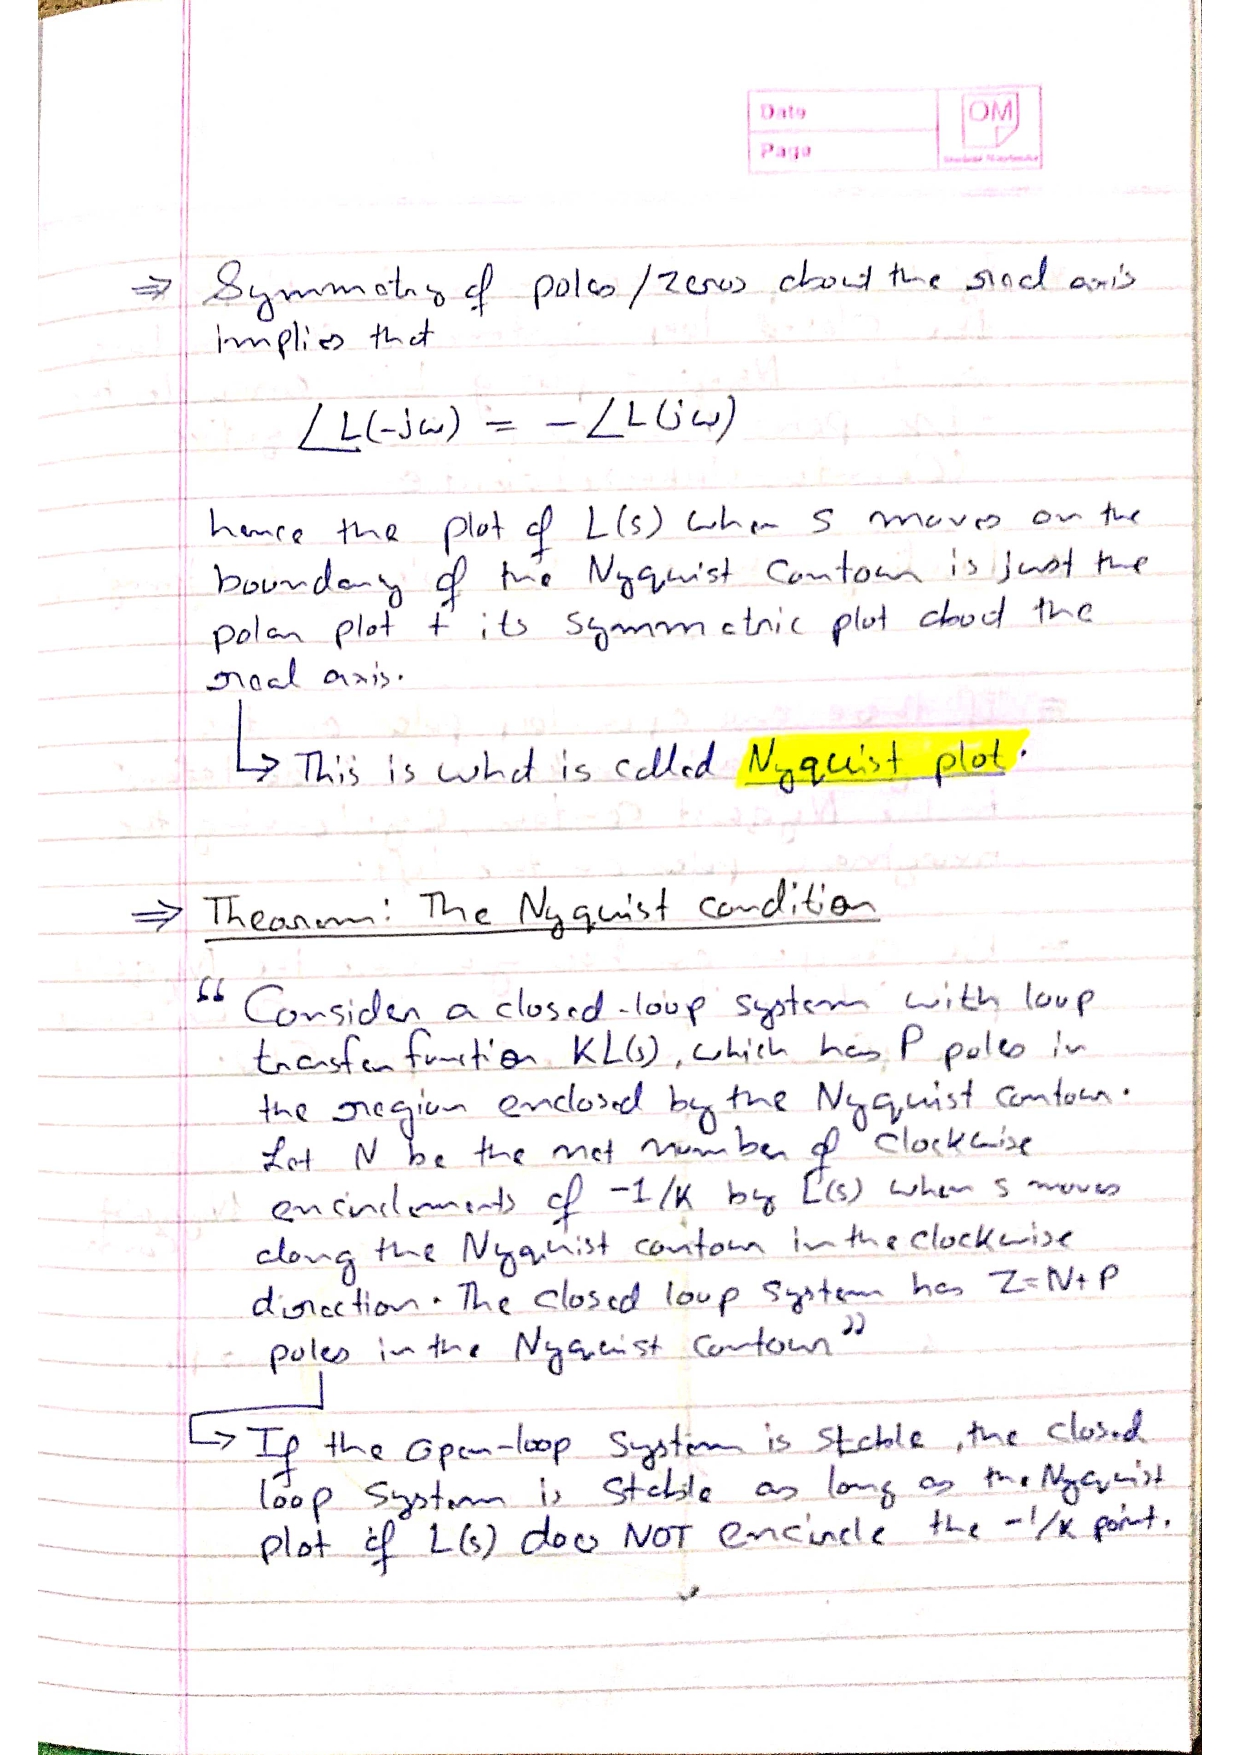 Date
Page
OM
⇒ Symmetry of poles/zeros about the real axis
implies that
∠L(-jω) = -∠L(jω)
hence the plot of L(s) when s moves on the
boundary of the Nyquist Contour is just the
polar plot + its symmetric plot about the
real axis.
↳ This is what is called Nyquist plot.
⇒ Theorem: The Nyquist condition
“ Consider a closed-loop system with loop
transfer function KL(s), which has P poles in
the region enclosed by the Nyquist contour.
Let N be the net number of clockwise
encirclements of -1/K by L(s) when s moves
along the Nyquist contour in the clockwise
direction. The closed loop system has Z=N+P
poles in the Nyquist Contour”
↳ If the open-loop system is stable, the closed
loop system is stable as long as the Nyquist
plot of L(s) does NOT encircle the -1/K point.